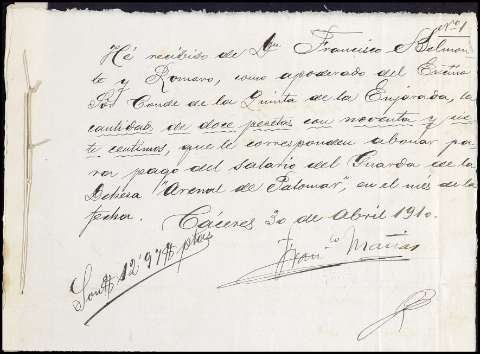 Nº 1
Hé recibido de Dn Francisco Belmon-
te y Romero, como apoderado del Excmo
Sor Conde de la Quinta de la Enjarada, la
cantidad de doce pesetas con noventa y sie-
te centimos, que le corresponden abonar pa-
ra pago del salario del Guarda de la
Dehesa "Arenal de Palomar", en el mes de la
fecha.
Cáceres 30 de Abril 1910.
Son # 12'97 # ptas
Franco Mañas